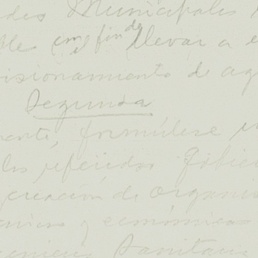 des Municipales
ble con fin de llevar a e
visionamiento de ag
Segunda
mente, formúlese e
los referidos
creación de organis
nicos y económicos
Sanitaria